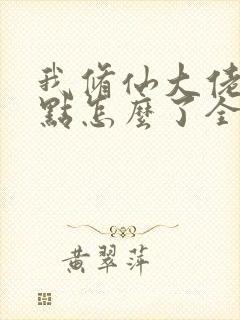 我修仙大佬
點怎麼了全
黃翠萍